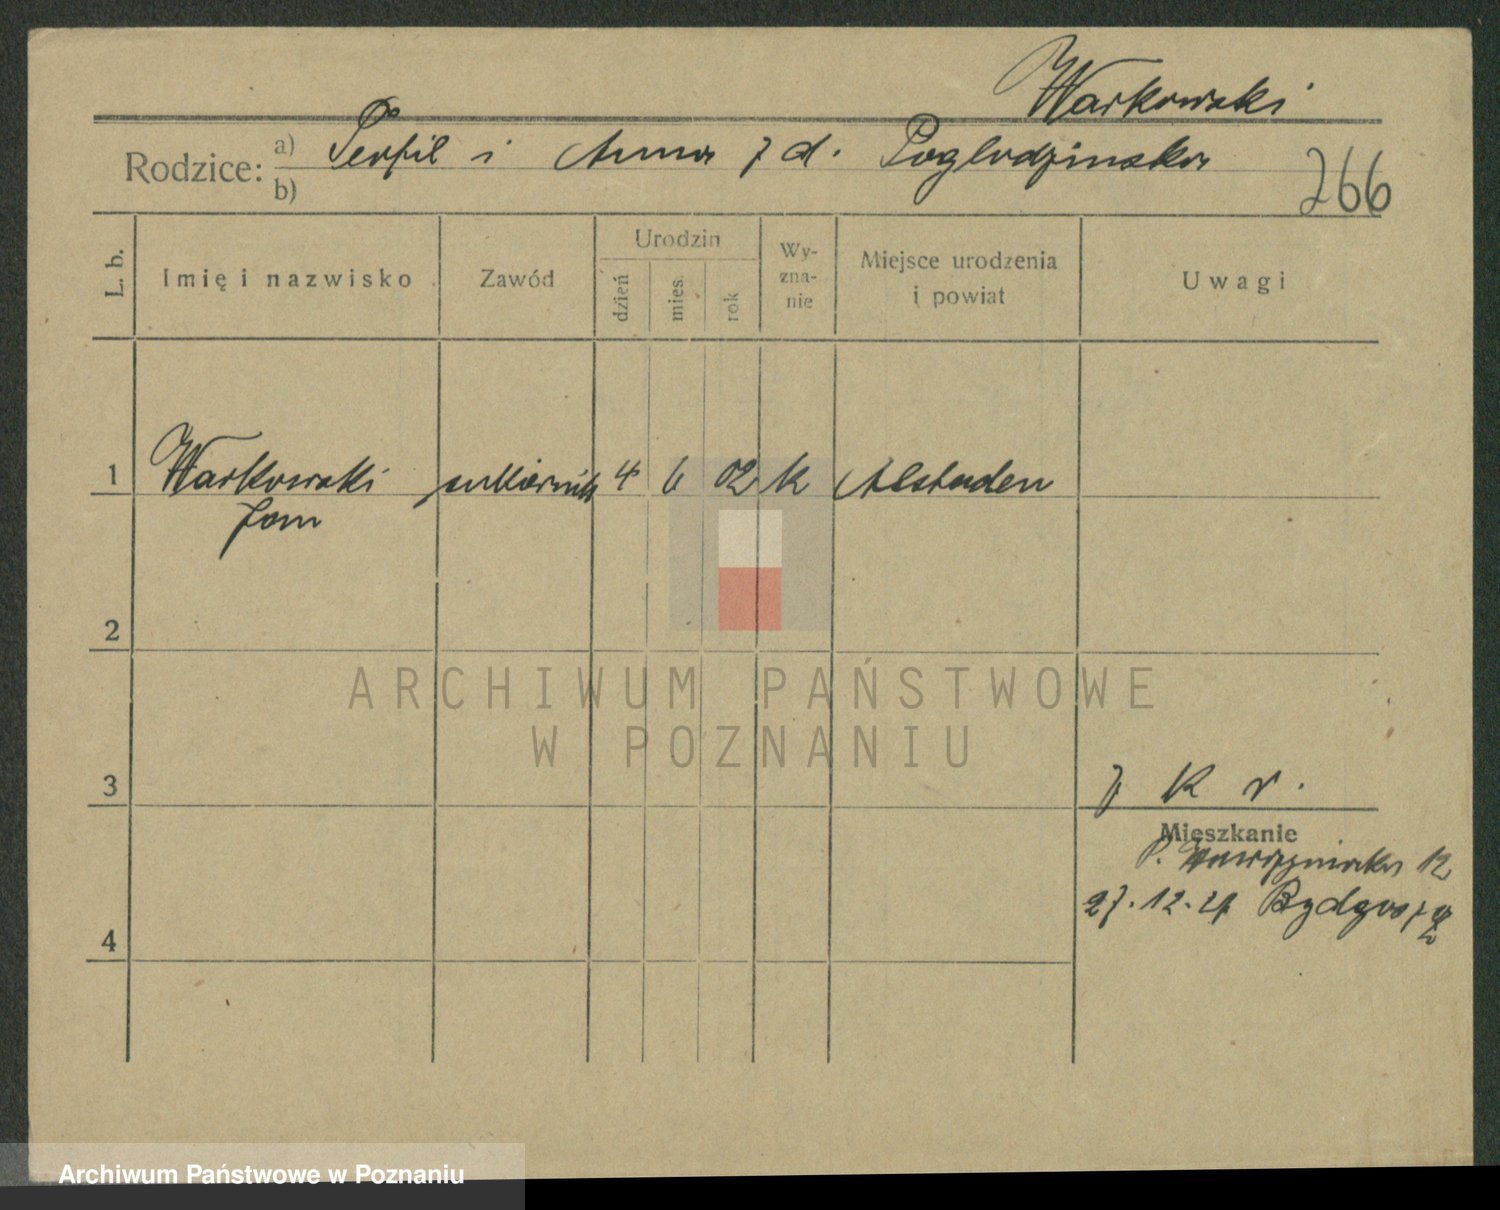 Warkowski
Rodzice: a) Teofil i Anna z d. Poglodzinska
b)
266
L. b.
Imię i nazwisko
Zawód
Urodzin
dzień
mies.
rok
Wy-
zna-
nie
Miejsce urodzenia
i powiat
Uwagi
1 Warkowski cukiernik 4 6 02 k Alstaden
Jan
2
ARCHIWUM PAŃSTWOWE
W POZNANIU
3
z K r.
Mieszkanie
P. Wawrzyniaka 12
27.12.21 Bydgoszcz
4
Archiwum Państwowe w Poznaniu